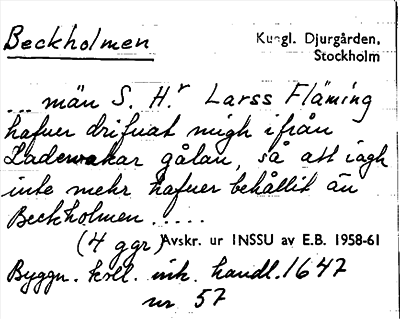 Beckholmen
Kungl. Djurgården,
Stockholm
... män S. H.r Larss Fläming
hafuer drifuat migh ifrån
Ladewakar gålan, så att iagh
inte mehr hafuer behållit än
Beckholmen .....
(4 ggr) Avskr. ur INSSU av E.B. 1958-61
Byggn. koll. ink. handl. 1647
nr 57